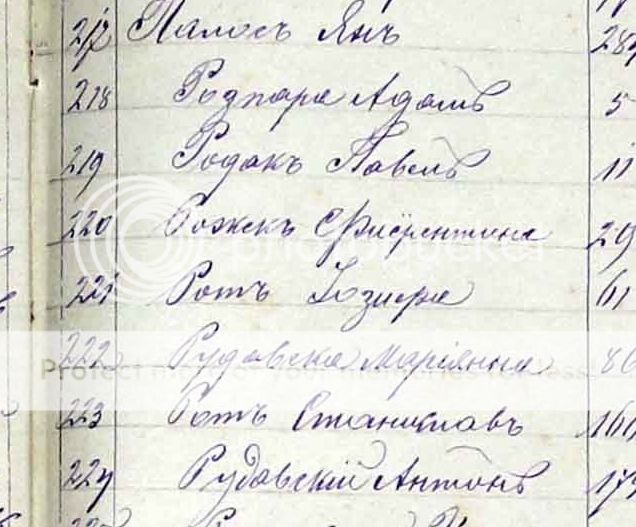 217 Палось Янъ 284
218 Родпара Адамъ 5
219 Родакъ Павелъ 11
220 Рожекъ 29
221 Ротъ Юзефа 61
222 Рудавска Маріянна 86
223 Ротъ Станиславъ 161
224 Рудавскій Антонъ 17